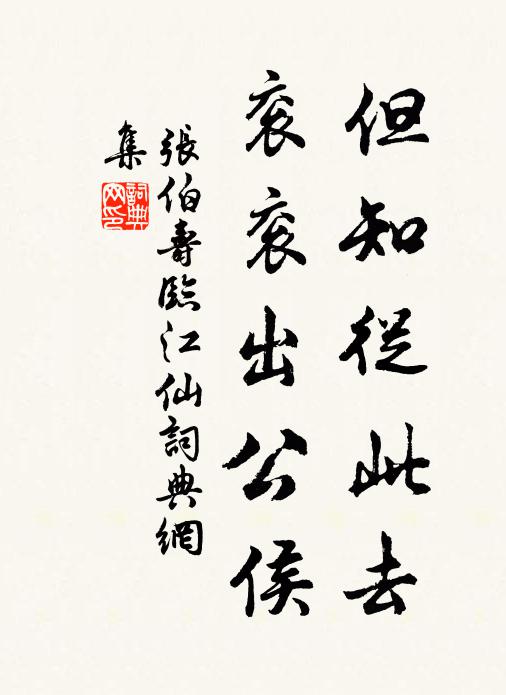 但知從此去
衮衮出公侯
張伯壽臨江仙詞典網
集
詞典
网印